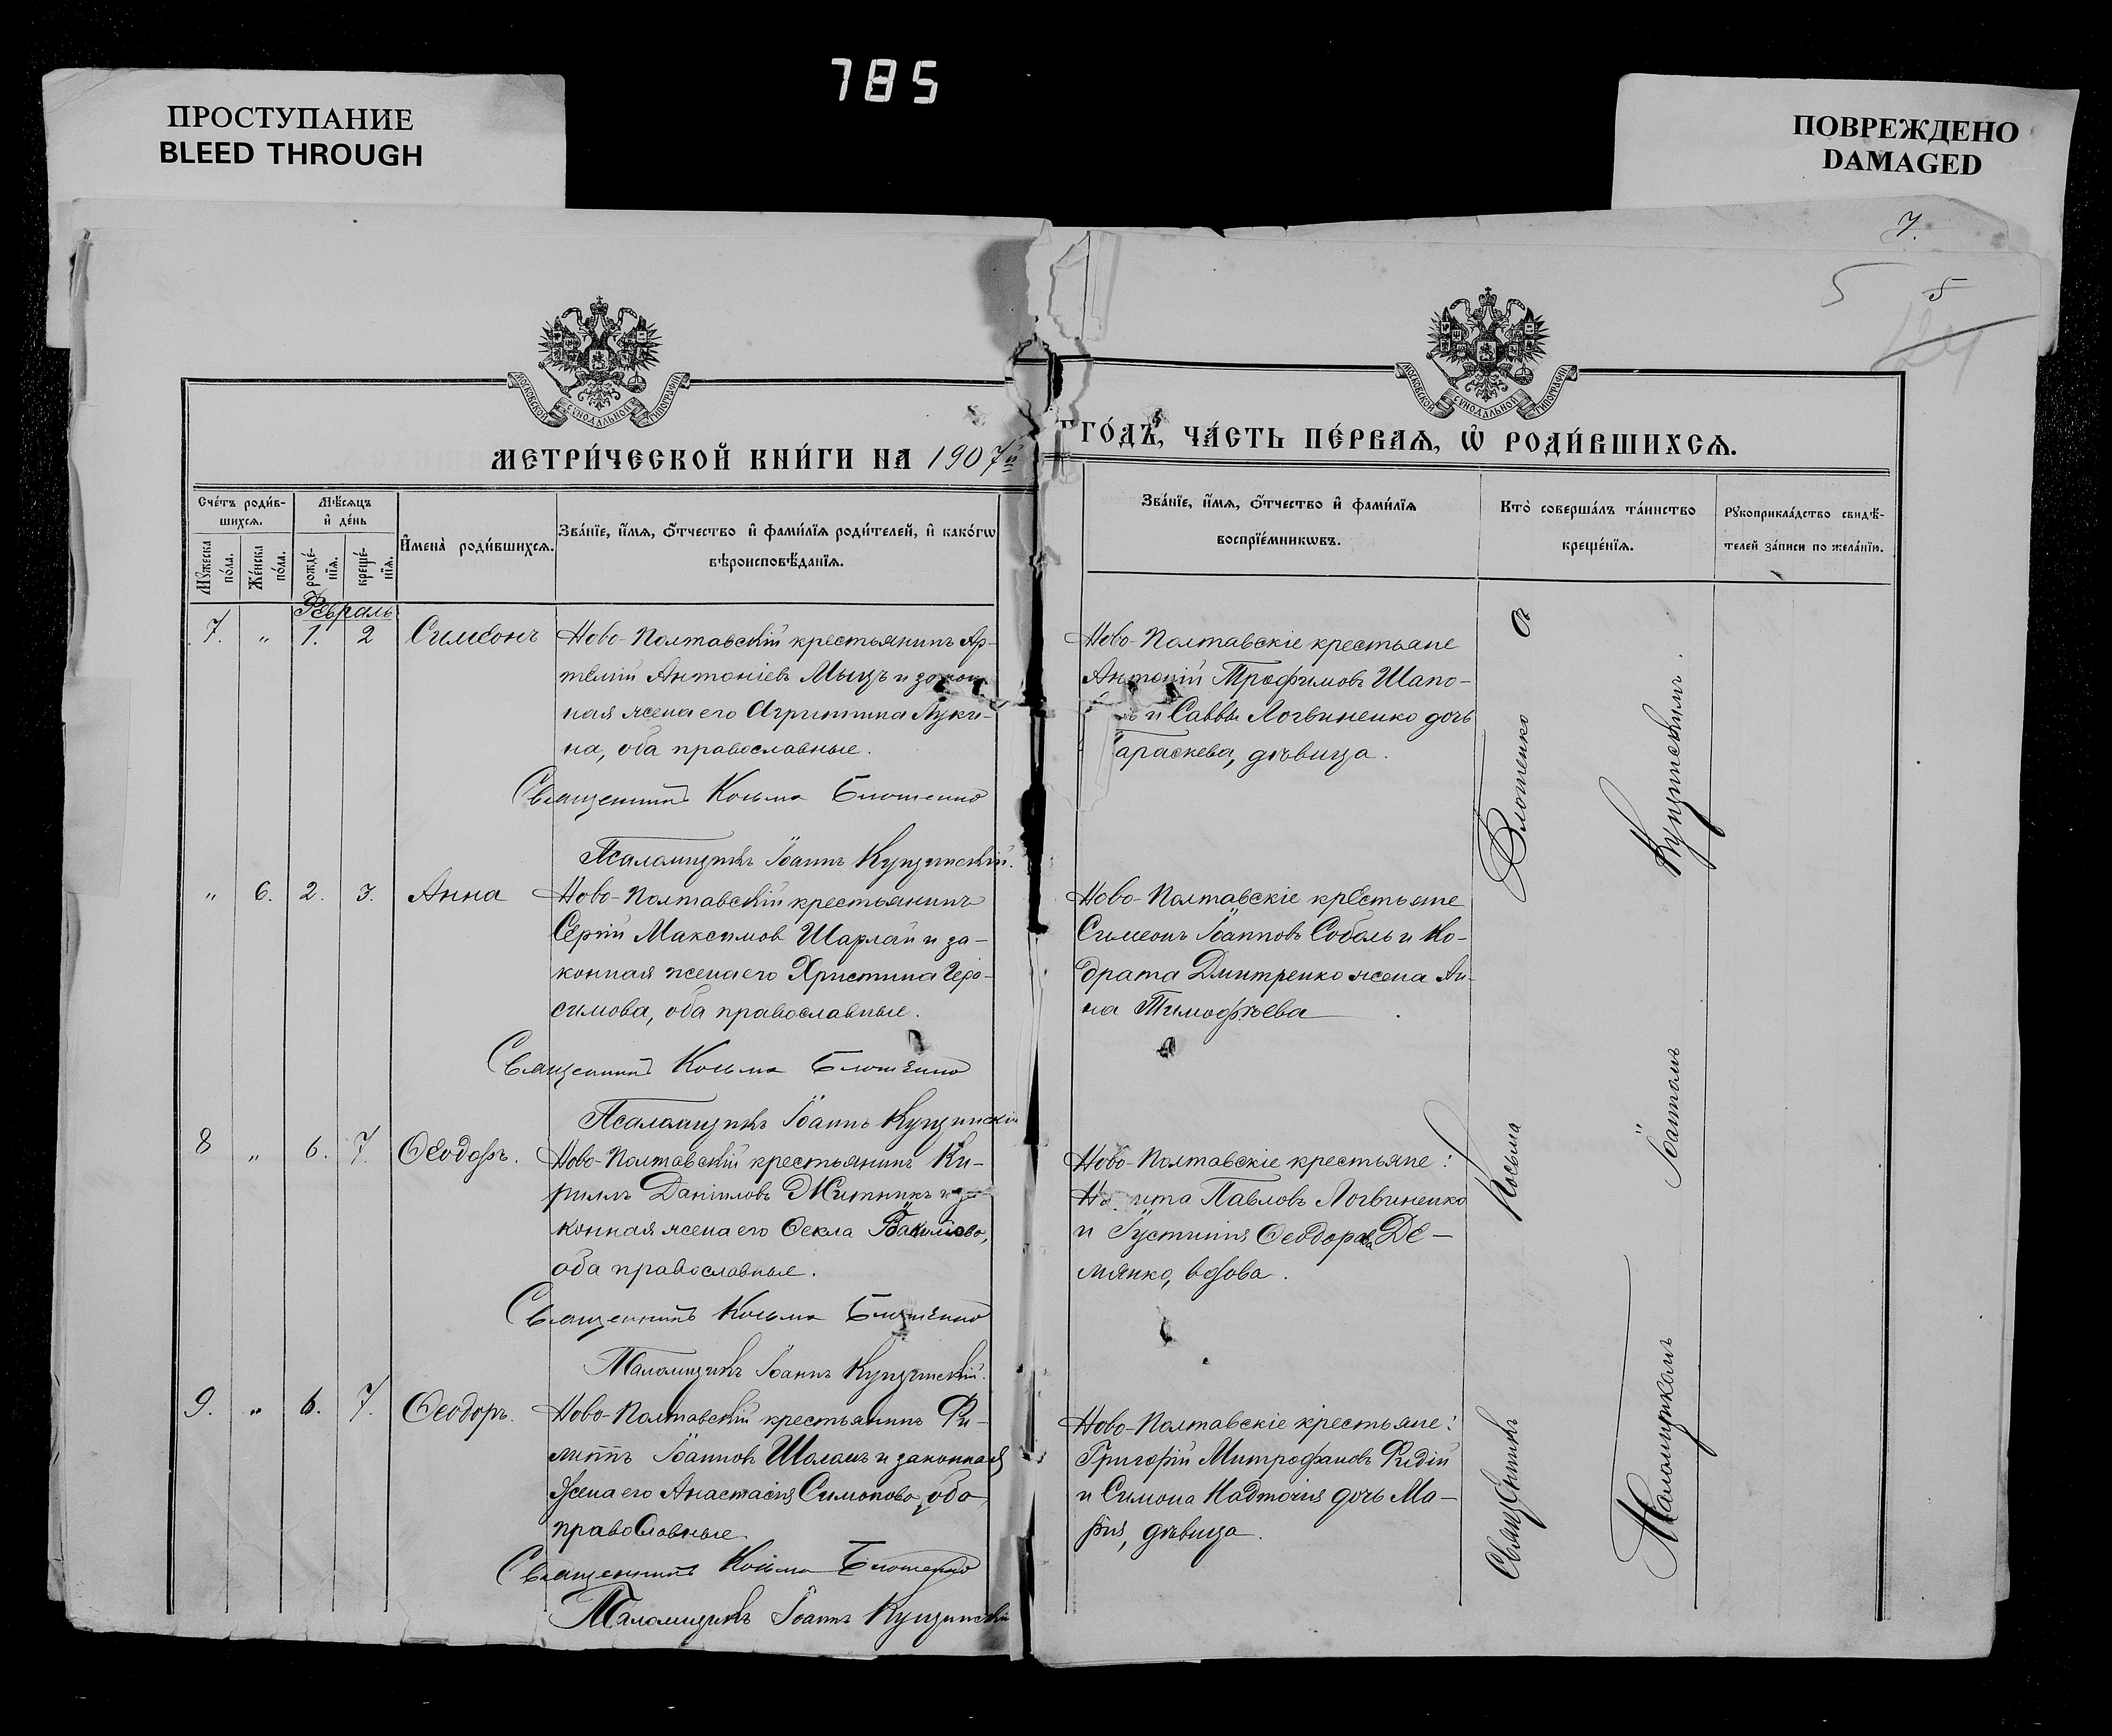 785
ПРОСТУПАНИЕ
BLEED THROUGH
ПОВРЕЖДЕНО
DAMAGED
7.
5 5
МОСКОВСКОЙ СУНОДАЛЬНОЙ ТИПОГРАФІИ
МОСКОВСКОЙ СУНОДАЛЬНОЙ ТИПОГРАФІИ
МЕТРИ́ЧЕСКОЙ КНИ́ГИ НА 1907й
ГО́ДЪ, ЧА́СТЬ ПЕ́РВАЯ, Ѿ РОДИ́ВШИХСЯ.
Сче́тъ роди́в-
шихся.
Мѣ́сяцъ
и҆ де́нь
Му́жеска
по́ла.
Же́нска
по́ла.
рожде́-
нїя.
креще́-
нїя.
И҆мена̀ роди́вшихся.
Зва́нїе, и҆́мя, ѻ҆́тчество и҆ фами́лїя роди́телей, и҆ како́гѡ
вѣроисповѣ́данїя.
Зва́нїе, и҆́мя, ѻ҆́тчество и҆ фами́лїя
воспрїе́мникѡвъ.
Кто̀ соверша́лъ та́инство
креще́нїя.
Рꙋкоприкла́дство свидѣ́-
телей за́писи по жела́нїю.
Февраль
7. " 1. 2 Симеонъ
Ново-Полтавскій крестьянинъ Ар-
темій Антоніевъ Мыцъ и закон-
ная жена его Агриппина Луки-
на, оба православные.
Священникъ Косьма Блошенко
Псаломщикъ Іоаннъ Купчинскій.
Ново-Полтавскіе крестьяне
Антоній Трофимовъ Шапо-
и Саввы Логвиненко дочь
Параскева, дѣвица.
" 6. 2. 3. Анна
Ново-Полтавскій крестьянинъ
Сергій Максимовъ Шарлай и за-
конная жена его Христина Гера-
симова, оба православные.
Священникъ Косьма Блошенко
Псаломщикъ Іоаннъ Купчинскій
Ново-Полтавскіе крестьяне
Симеонъ Іоанновъ Соболь и Ко-
драта Дмитренко жена Ан-
на Тимофѣева
8 " 6. 7. Ѳеодоръ.
Ново-Полтавскій крестьянинъ Ки-
риллъ Даніиловъ Житникъ и за-
конная жена его Ѳекла
оба православные.
Священникъ Косьма Блошенко
Псаломщикъ Іоаннъ Купчинскій.
Ново-Полтавскіе крестьяне:
Никита Павловъ Логвиненко
и Іустинія Ѳеодорова Де-
мянко, вдова.
9. " 6. 7. Ѳеодоръ.
Ново-Полтавскій крестьянинъ Фи-
липпъ Іоанновъ Шаламъ и законная
жена его Анастасія Симонова, оба
православные.
Священникъ Косьма Блошенко
Псаломщикъ Іоаннъ Купчинскій
Ново-Полтавскіе крестьяне:
Григорій Митрофановъ
и Симона дочь Ма-
рія, дѣвица.
Священникъ Косьма Блошенко съ
Псаломщикомъ Іоанномъ Купчинскимъ.